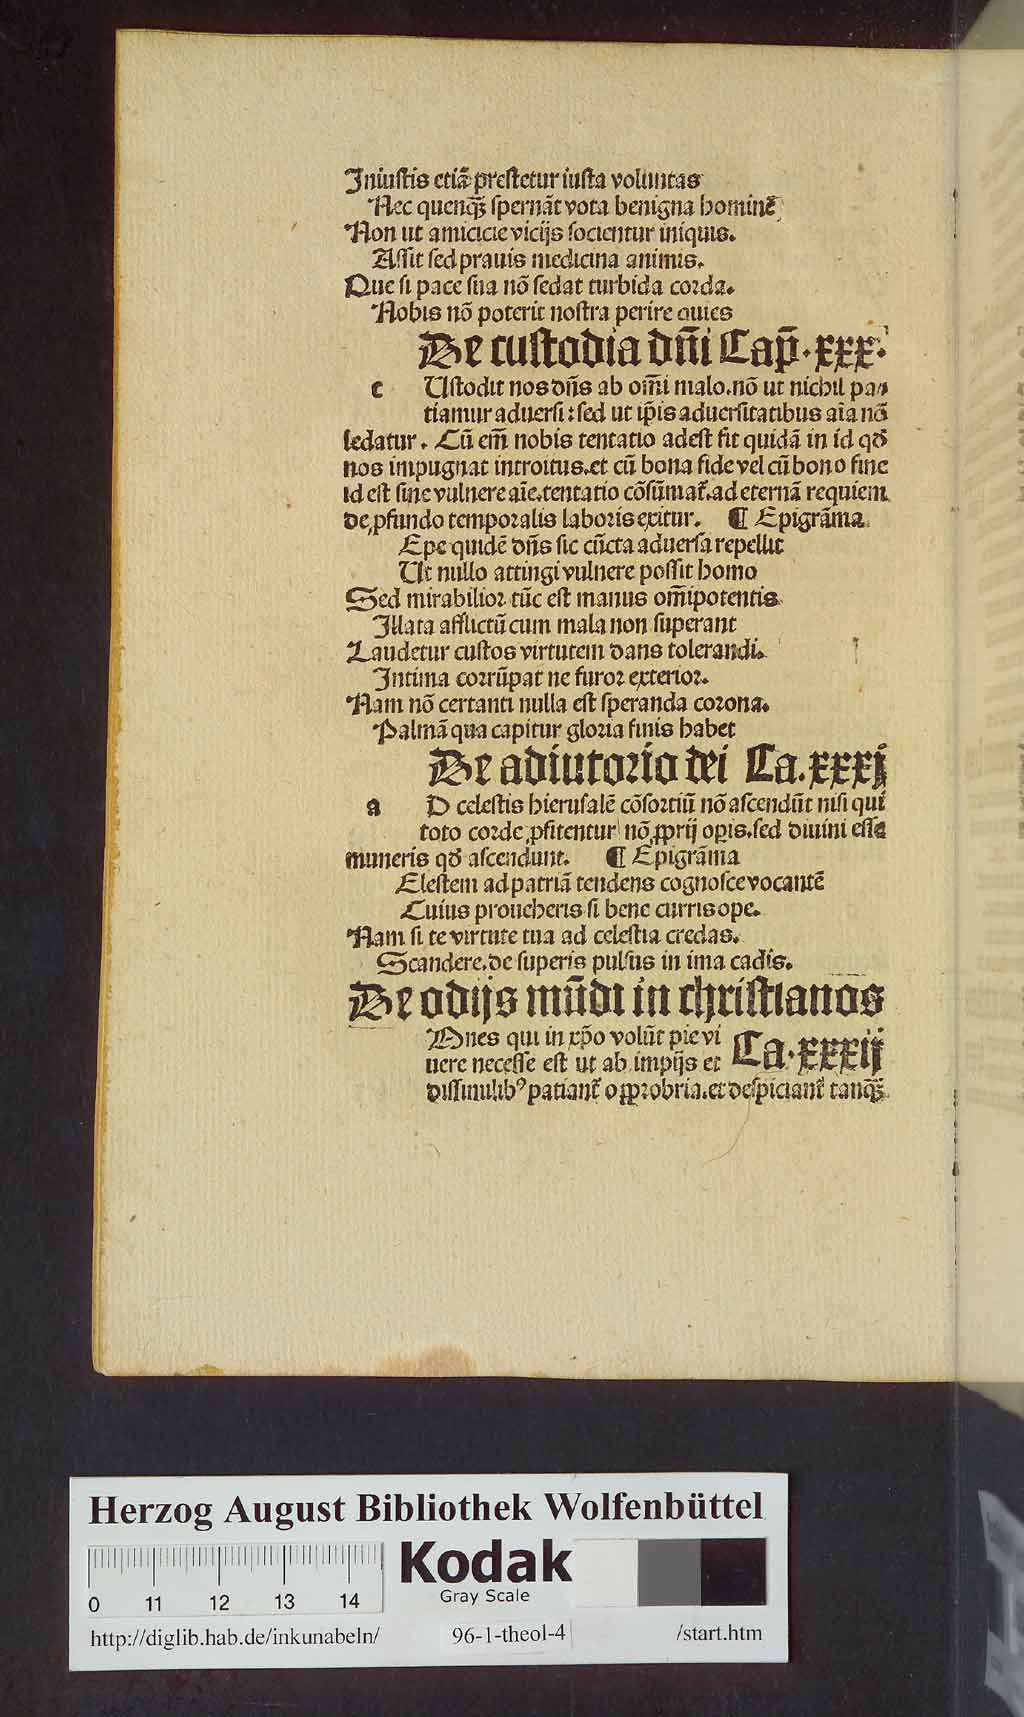 Iniustis etiã prestetur iusta voluntas
Nec quenqȝ spernãt vota benigna hominẽ
Non ut amicicie vicijs socientur iniquis.
Assit sed prauis medicina animis.
Que si pace sua nõ sedat turbida corda.
Nobis nõ poterit nostra perire quies
De custodia dñi Cap̃.xxx.
c Ustodit nos dñs ab om̃i malo.nõ ut nichil pa-
tiamur aduersi:sed ut ip̃is aduersitatibus aĩa nõ
ledatur. Cũ em̃ nobis tentatio adest fit quidã in id qđ
nos impugnat introitus.et cũ bona fide vel cũ bono fine
id est sine vulnere aĩe.tentatio cõsũmat̃.ad eternã requiem
de ꝓfundo temporalis laboris exitur. ¶ Epigrãma.
Epe quidẽ dñs sic cũcta aduersa repellit
Ut nullo attingi vulnere possit homo
Sed mirabilior tũc est manus om̃ipotentis
Illata afflictũ cum mala non superant
Laudetur custos virtutem dans tolerandi.
Intima corrũpat ne furor exterior.
Nam nõ certanti nulla est speranda corona.
Palmã qua capitur gloria finis habet
De adiutorio dei Ca.xxxj
a D celestis hierusalẽ cõsortiũ nõ ascendũt nisi qui
toto corde ꝓfitentur nõ ꝓprij oꝑis.sed diuini esse
muneris qđ ascendunt. ¶ Epigrãma
Elestem ad patriã tendens cognosce vocantẽ
Cuius proueheris si bene curris ope.
Nam si te virtute tua ad celestia credas.
Scandere.de superis pulsus in ima cadis.
De odijs mũdi in christianos
Mnes qui in xp̃o volũt pie vi
uere necesse est ut ab impijs et
Ca.xxxij
dissimilibꝰ patiant̃ opꝓbria.et despiciant̃ tanqȝ
Herzog August Bibliothek Wolfenbüttel
Kodak
Gray Scale
0 11 12 13 14
http://diglib.hab.de/inkunabeln/ 96-1-theol-4 /start.htm